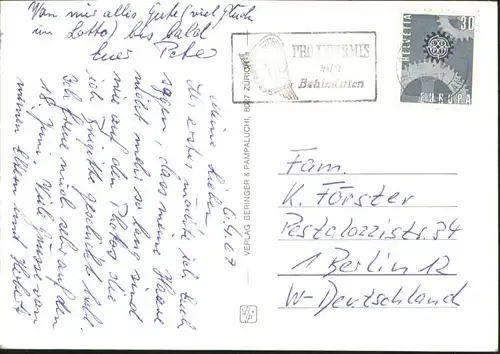 Von mir alles Gute (viel Glück
im Lotto) bis bald
Euer Peter
6.4.67
Meine Lieben!
Als erstes möchte ich Euch
sagen, dass meine Haare
nicht mehr so lang sind
wie auf den Photos die
ich Brigitte geschickt hab.
Ich freue mich sehr auf den
18. Juni. Viele Grüsse von
meinen Eltern und
VERLAG BERINGER & PAMPALUCHI, 8027 ZÜRICH
PRO INFIRMIS
hilft
Behinderten
HELVETIA
30
CEPT
EUROPA
Fam.
K. Förster
Pestalozzistr. 84
1 Berlin 12
W-Deutschland